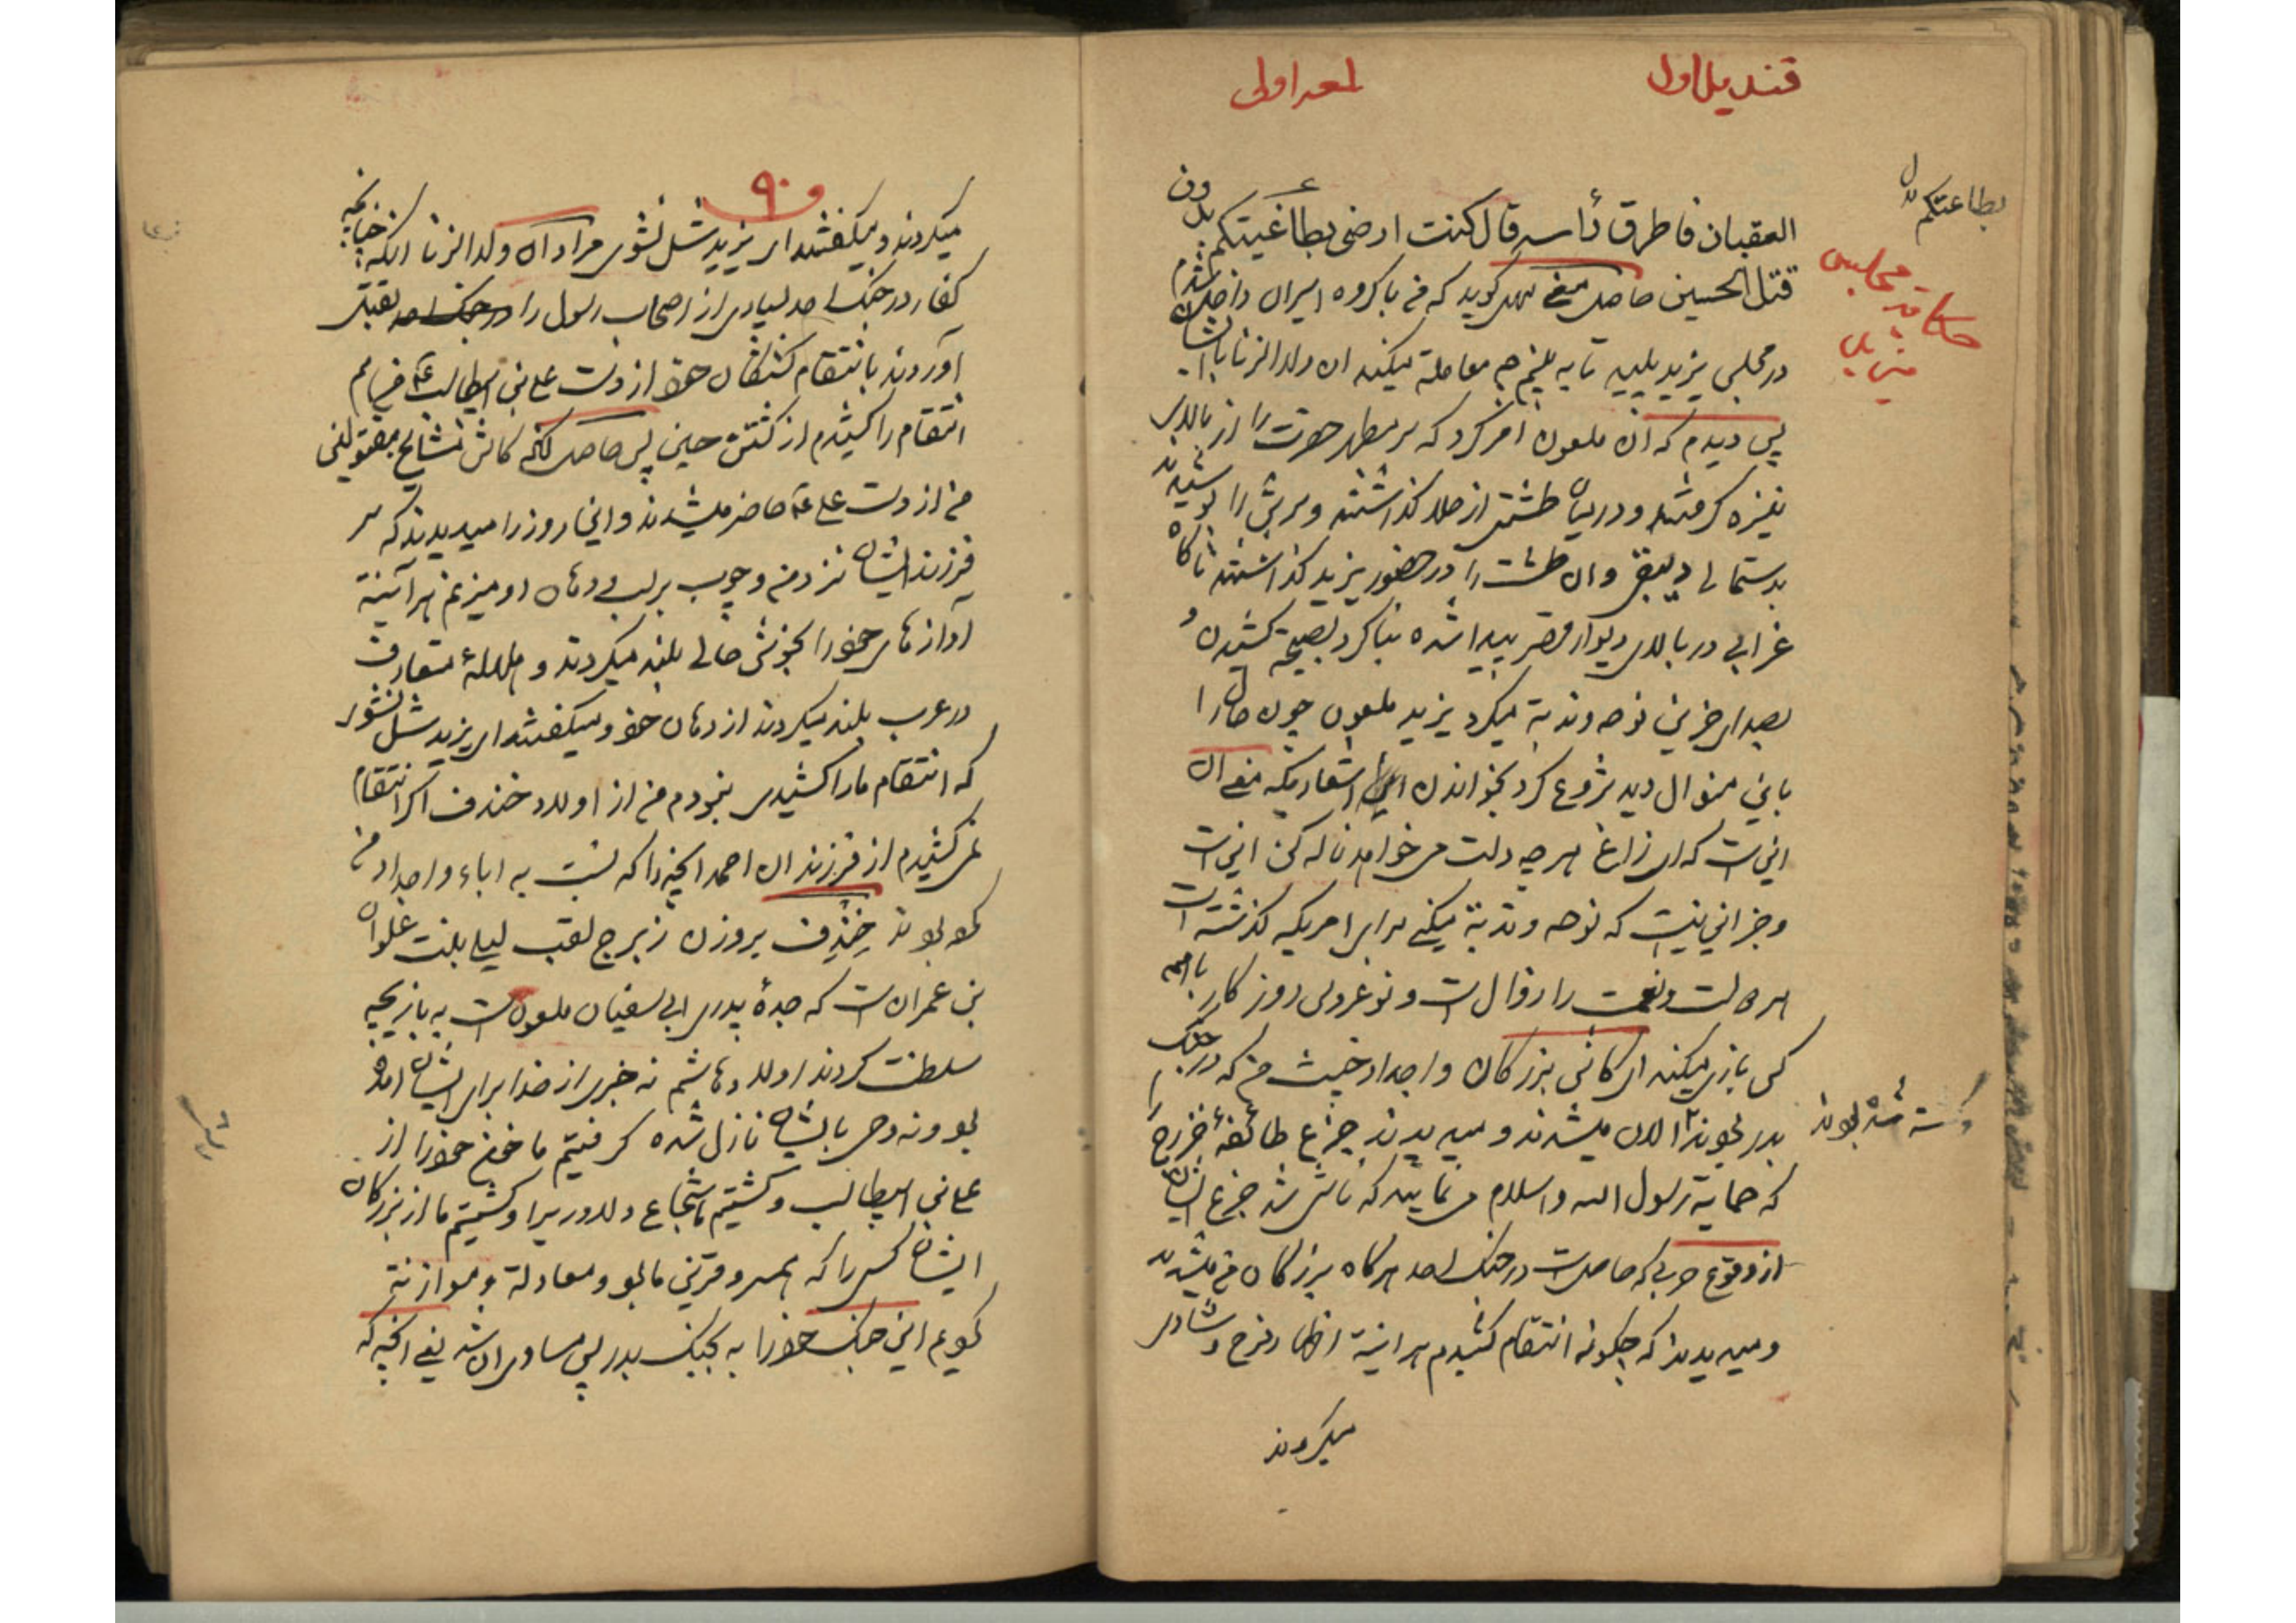 قندیل اول
لمعه اولی
بطاعتکم
العقبان فاطرق رأسه قال کنت ارضی بطاغیتکم بدون
قتل الحسین حاصل معنی سهل کوید که من با کروه اسیران داخل شدم
در مجلس یزید پلید تا به بینم چه معامله میکند ان ولدالزنا با ایشان
پس دیدم که ان ملعون امر کرد که سر مطهر حضرت را از بالای
نیزه کرفتند و در میان طشتی از طلا کذاشتند و سرش را پوشیدند
بدستمالی دیبقی و ان طشت را در حضور یزید کذاشتند ناکاه
غرابی در بالای دیوار قصر پیدا شده بنا کرد بصیحه کشیدن و
بصدای حزین نوحه وندبة میکرد یزید ملعون چون حال را
باین منوال دید شروع کرد بخواندن این اشعاریکه معنی ان
اینست که ای زاغ هر چه دلت می خواهد ناله کن اینست
وجز این نیست که نوحه و ندبة میکنی برای امریکه کذشته است
هر دولت و نعمت را زوالست و نو عروس روزکار با همه
کس بازی میکند ای کاش بزرکان و اجداد خبیث من که در جنک
بدر بودند الان میشدند و میدیدند جزع طائفهٔ خزرج را
کشته شده بودند
که حمایة رسول الله و اسلام می نمایند که ناشی شد جزع ایشان
از وقوع حربی که حاصلست در جنک احد هرکاه بزرکان من میشدند
و میدیدند که چکونه انتقام کشیدم هراینة اظهار فرح و شادی
میکردند
۹۰
میکردند و میکفتند ای یزید شل نشوی مراد آن ولدالزنا انکه چنانچه
کفار در جنک احد بسیاری از اصحاب رسول را در جنک احد بقتل
آوردند بانتقام کشتکان خود از دست علی بن ابیطالب ع من هم
انتقام را کشیدم از کشتن حسین پس حاصل انکه کاش مشایخ مقتولین
من از دست علی ع حاضر میشدند و این روز را میدیدند که سر
فرزند ایشان نزد من و چوب بر لب و دهان او میزنم هر آینه
آوازهای خود را بخوش حالی بلند میکردند و هلهلهٔ متعارف
در عرب بلند میکردند از دهان خود و میکفتند ای یزید شل نشوی
که انتقام ما را کشیدی نبودم من از اولاد خندف اکر انتقام
نمی کشیدم از فرزندان احمد انچه را که نسبت به اباء و اجداد من
کرده بودند خِنْدِف بروزن زبرج لقب لیلی بنت علوان
بن عمرانست که جدهٔ پدری ابی سفیان ملعونست به بازیچه
سلطنت کردند اولاد هاشم نه خبری از خدا برای ایشان امده
بود و نه وحی بایشان نازل شده کرفتیم ما خون خود را از
علی بن ابیطالب و کشتیم ما شجاع و دلاور یرا و کشتیم ما از بزرکان
ایشان کسی را که همسر و قرین ما بود و معادلة و موازنة
کردیم این جنک خود را به جنک بدر پس مساوی ان شد یعنی انچه که